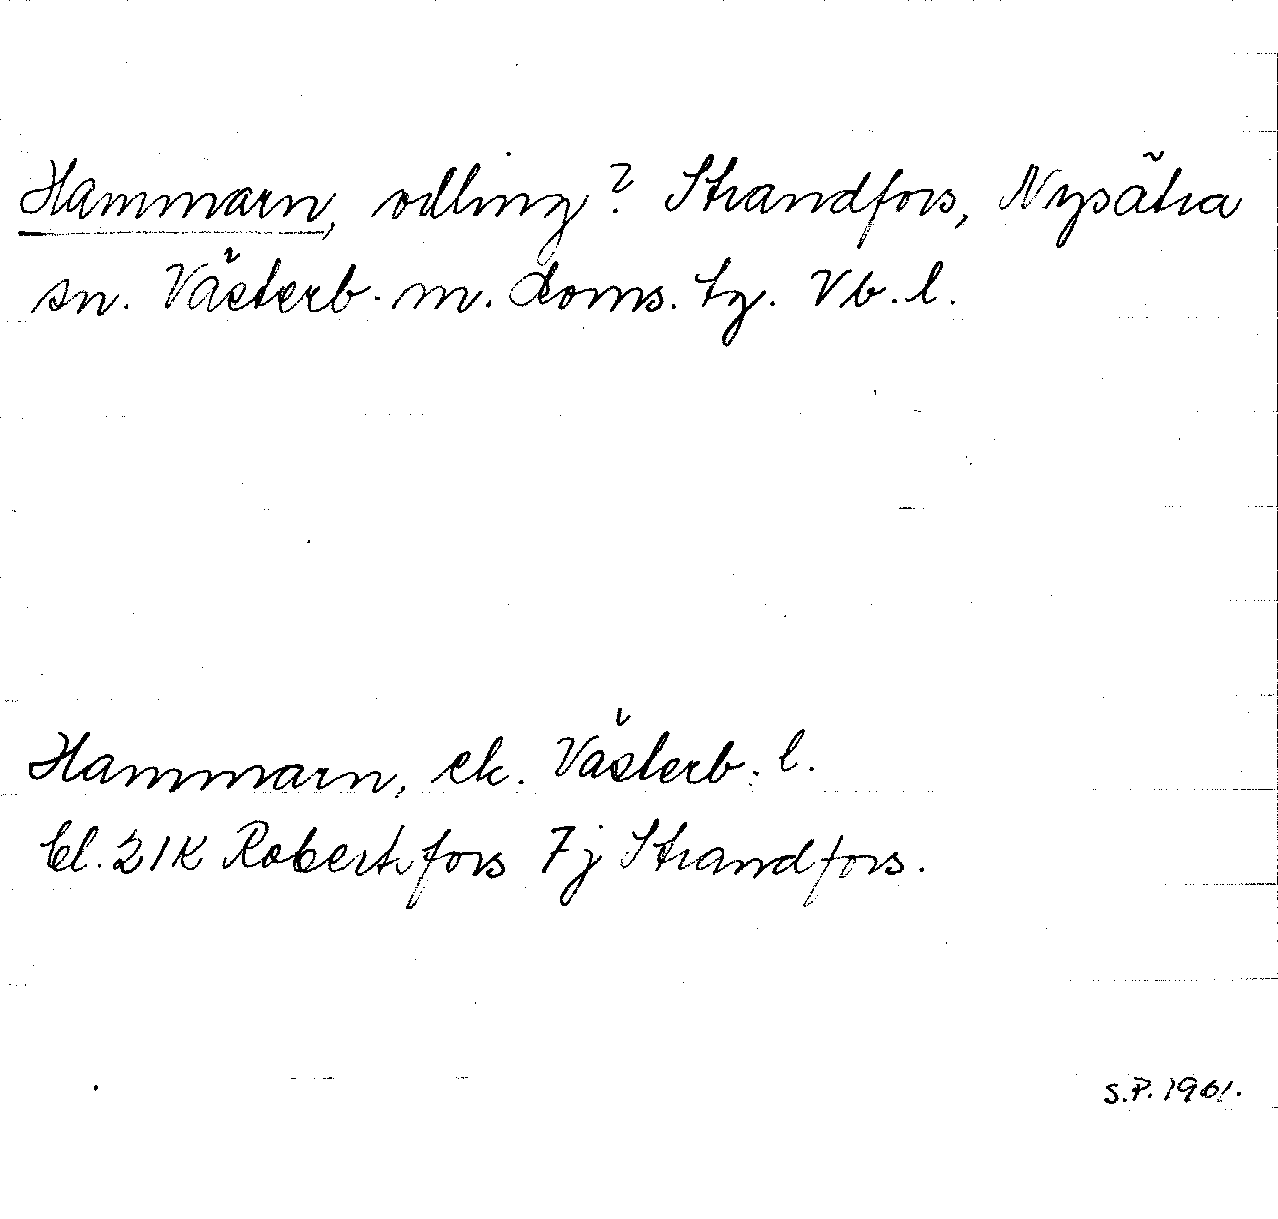 Hammarn, odling? Strandfors, Nysätra
sn. Västerb. m. doms. tg. Vb. l.
Hammarn, ek. Västerb. l.
bl. 21K Robertsfors 7j Strandfors.
S.P. 1961.